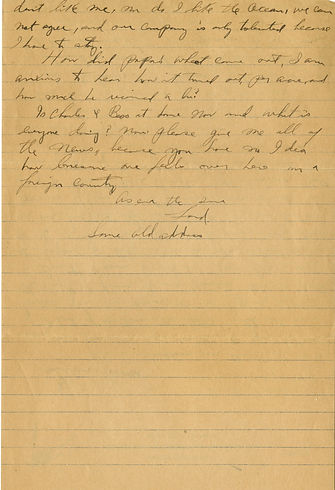 dont like me, nor do I like the Ocean, we can
not agree, and our company is only tolerated because
I have to stay.
How did papa's wheat come out, I am
anxious to hear how it turned out per acre, and
how much he received a bu.
Is Charles & Bess at home now and what is
everyone doing? Now please give me all of
the News, because you have no Idea
how lonesome one feels over here in a
foreign country
As ever the same
Same old address